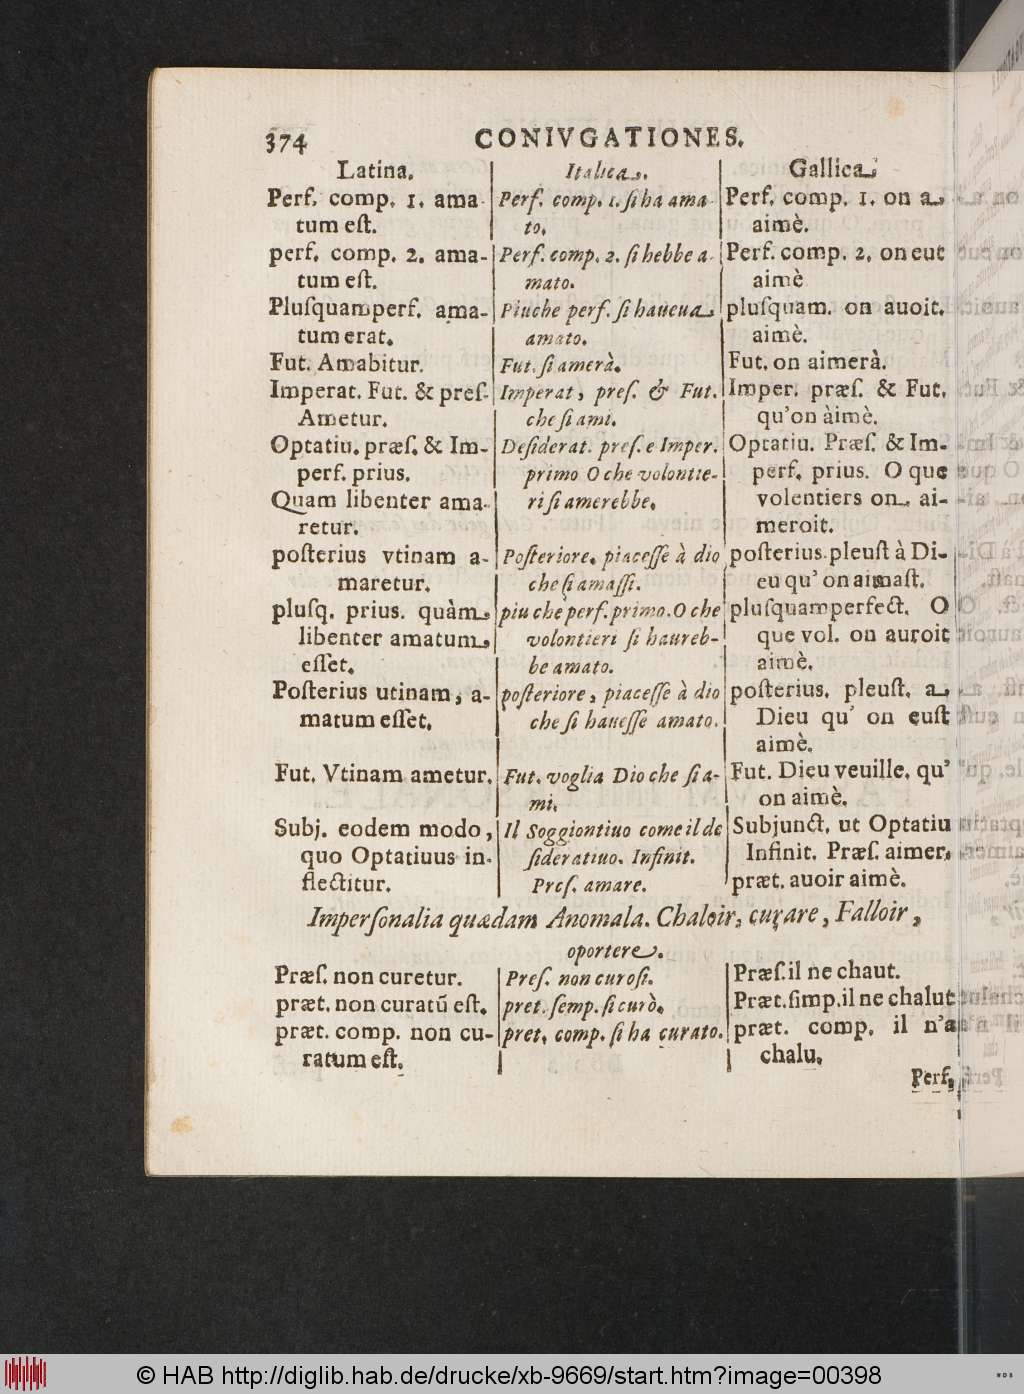 374 CONIVGATIONES.
Latina.
Perf. comp. 1. ama-
tum eſt.
perf. comp. 2. ama-
tum eſt.
Pluſquamperf. ama-
tum erat.
Fut. Amabitur.
Imperat. Fut. & preſ.
Ametur.
Optatiu. præſ. & Im-
perf. prius.
Quam libenter ama-
retur.
poſterius vtinam a-
maretur.
pluſq. prius. quàm
libenter amatum
eſſet.
Poſterius utinam, a-
matum eſſet.
Fut. Vtinam ametur.
Subj. eodem modo,
quo Optatiuus in-
flectitur.
Italica.
Perf. comp. 1. ſi ha ama-
to.
Perf. comp. 2. ſi hebbe a-
mato.
Piuche perf. ſi haueua
amato.
Fut. ſi amerà.
Imperat, preſ. & Fut.
che ſi ami.
Deſiderat. preſ. e Imper.
primo O che volontie-
ri ſi amerebbe.
Poſteriore. piaceſſe à dio
che ſi amaſſi.
piu che perf. primo. O che
volontieri ſi haureb-
be amato.
poſteriore, piaceſſe à dio
che ſi haueſſe amato.
Fut. voglia Dio che ſi a-
mi.
Il Soggiontiuo come il de
ſideratiuo. Infinit.
Preſ. amare.
Gallica
Perf. comp. 1. on a
aimè.
Perf. comp. 2. on eut
aimè
pluſquam. on auoit.
aimè.
Fut. on aimerà.
Imper. præſ. & Fut.
qu'on àimè.
Optatiu. Præſ. & Im-
perf. prius. O que
volentiers on ai-
meroit.
poſterius pleuſt à Di-
eu qu' on aimaſt.
pluſquamperfect. O
que vol. on auroit
aimè.
poſterius. pleuſt. a
Dieu qu' on euſt
aimè.
Fut. Dieu veuille. qu'
on aimè.
Subjunct. ut Optatiu
Infinit. Præſ. aimer.
præt. auoir aimè.
Imperſonalia quædam Anomala. Chaloir, curare, Falloir,
oportere.
Præſ. non curetur.
præt. non curatū eſt.
præt. comp. non cu-
ratum eſt.
Preſ. non curoſi.
pret. ſemp. ſi curò.
pret. comp. ſi ha curato.
Præſ. il ne chaut.
Præt. ſimp. il ne chalut
præt. comp. il n'a
chalu.
Perf.
© HAB http://diglib.hab.de/drucke/xb-9669/start.htm?image=00398